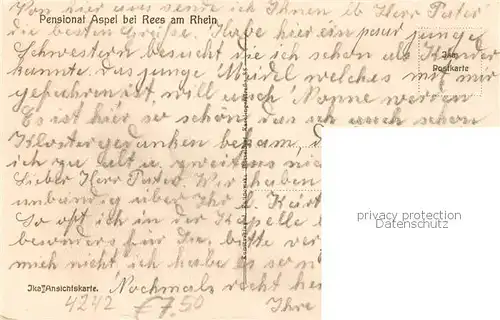 Von hier aus sende ich Ihnen lb Herr Pater
Pensionat Aspel bei Rees am Rhein.
die besten Grüße. Habe hier ein paar junge
Schwestern besucht die ich schon als Kinder
Ika
Postkarte
kannte. das junge Mädel welches mit mir
gefahren ist, will auch Nonne werden
Es ist hier so schön das ich auch schon
Klostergedanken bekam, d
ich zu alt u. zweitens ni
Lieber Herr Pater. Wir haben
unbändig über Ihr l. Kart
So oft ich in der Kapelle
besonders für Sie, bitte ver
mich nicht ich habe es so
Ika Ansichtskarte.
Nochmals recht her
4242 £7.50
Ihre
privacy protection
DATENSCHUTZ